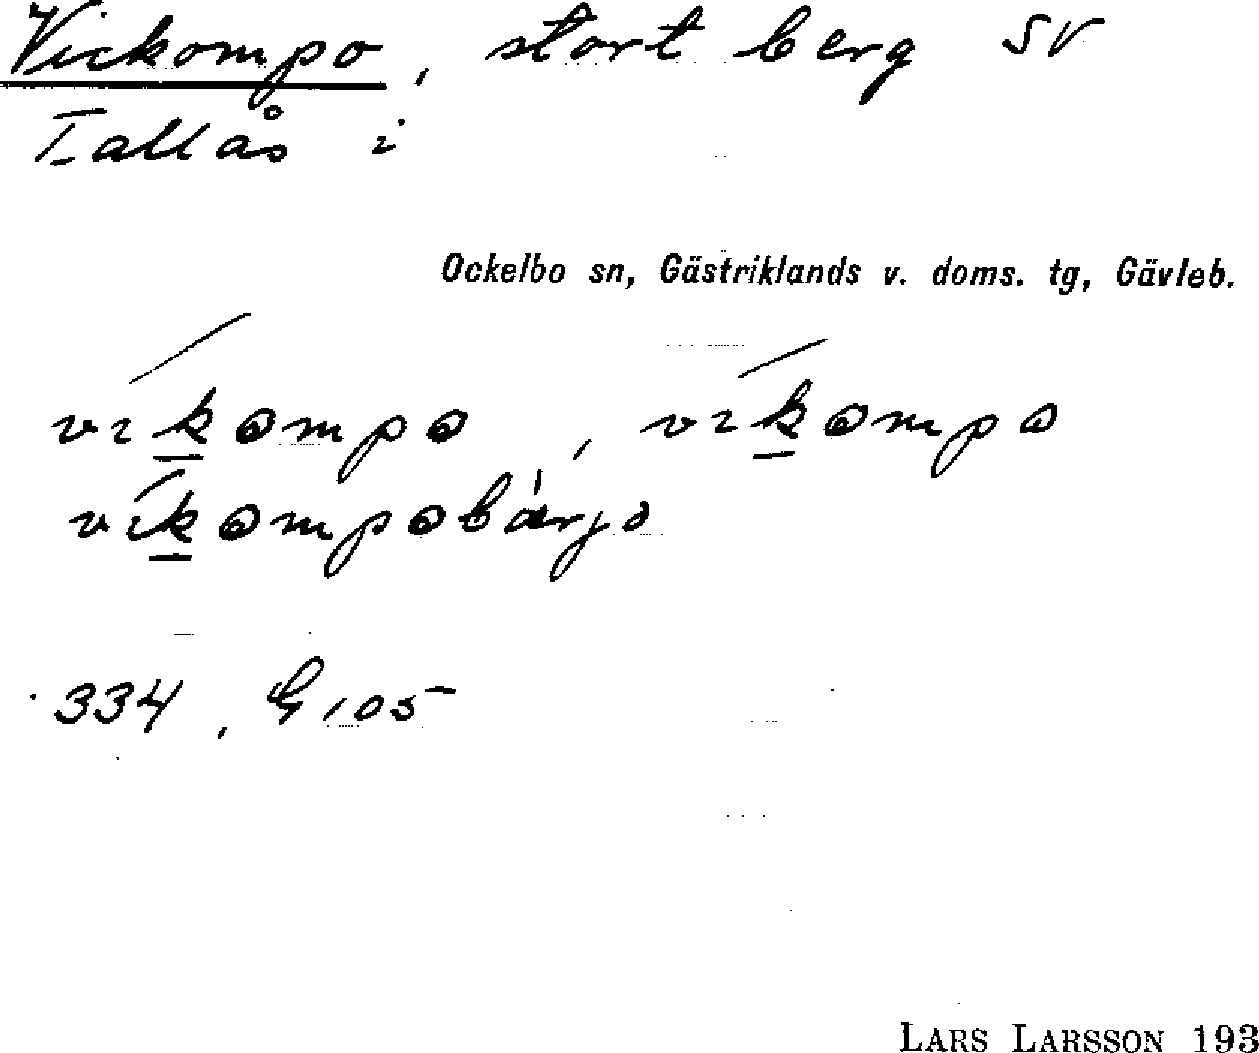 Vickompo, stort berg SV
Tallås i
Ockelbo sn, Gästriklands v. doms. tg, Gävleb.
víkompo, víkompo
víkompobàrjə
334, G105
LARS LARSSON 193